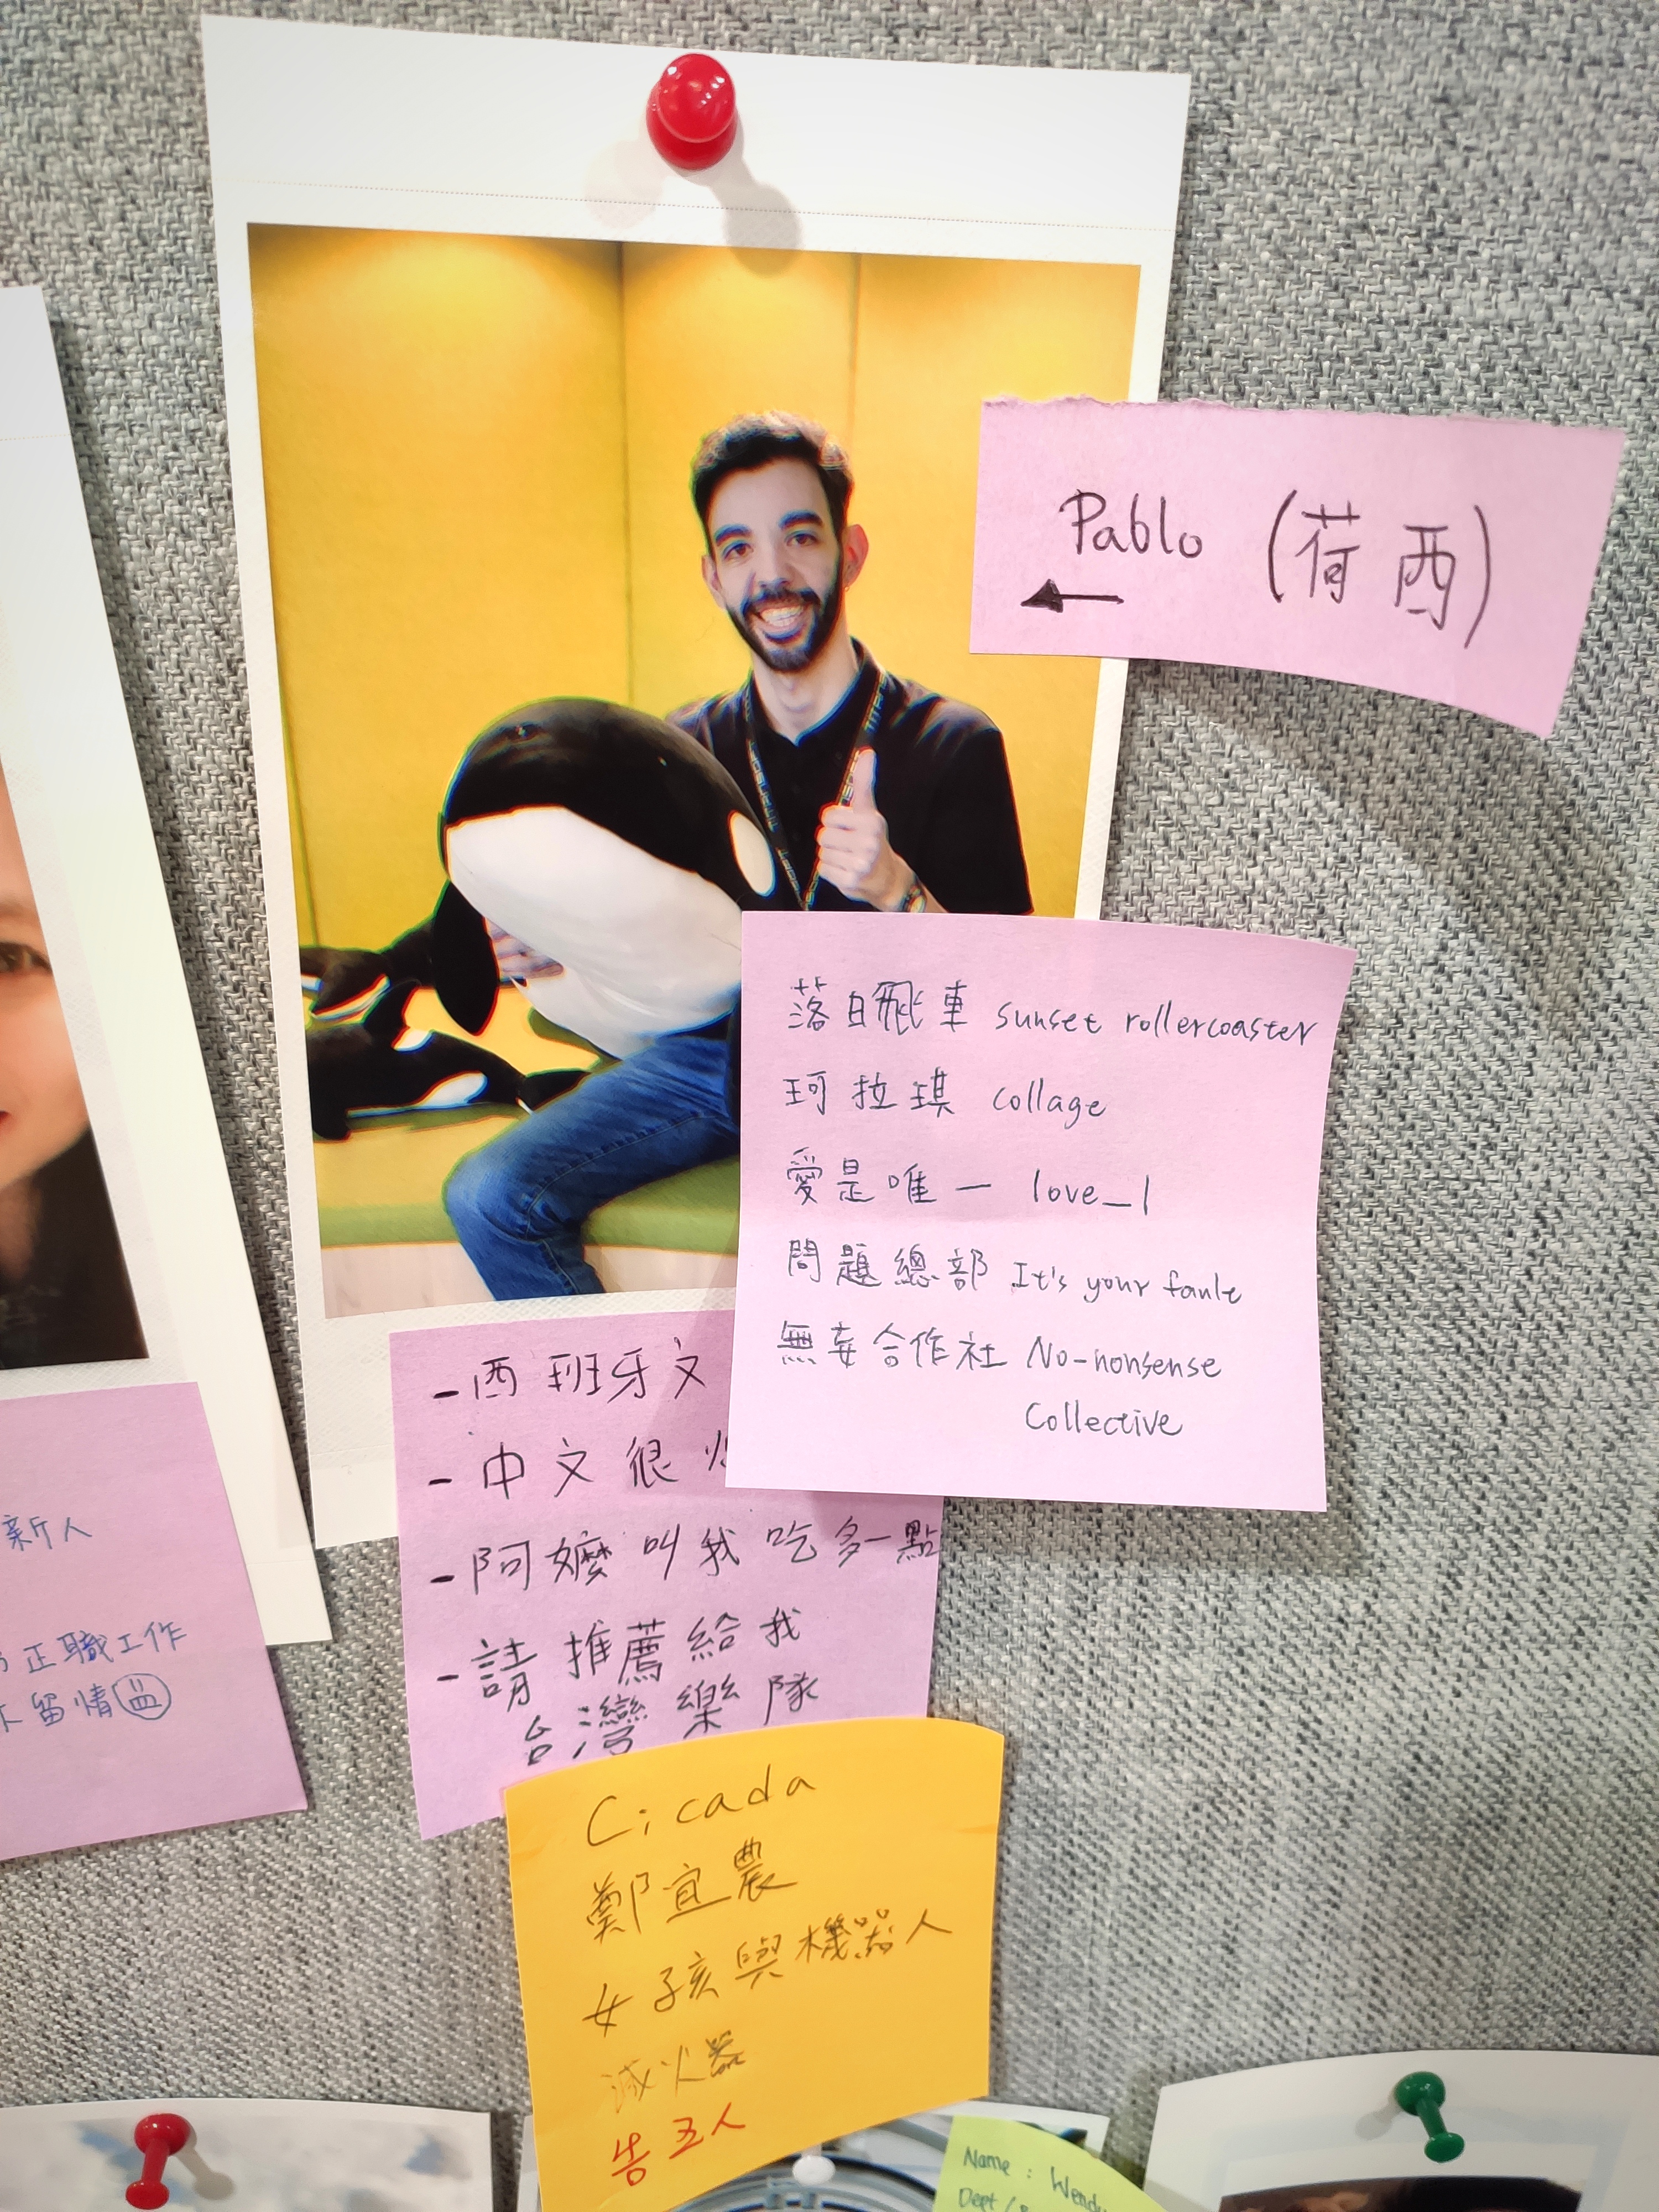 Pablo (荷西)
落日飛車 sunset rollercoaster
珂拉琪 collage
愛是唯一 love_1
問題總部 It's your fault
無妄合作社 No-nonsense
Collective
-西班牙文
-中文很
-阿嬤叫我吃多一點
-請推薦給我
台灣樂隊
Cicada
鄭宜農
女孩與機器人
滅火器
告五人
新人
正職工作
留情
Name: Wendy
Dept